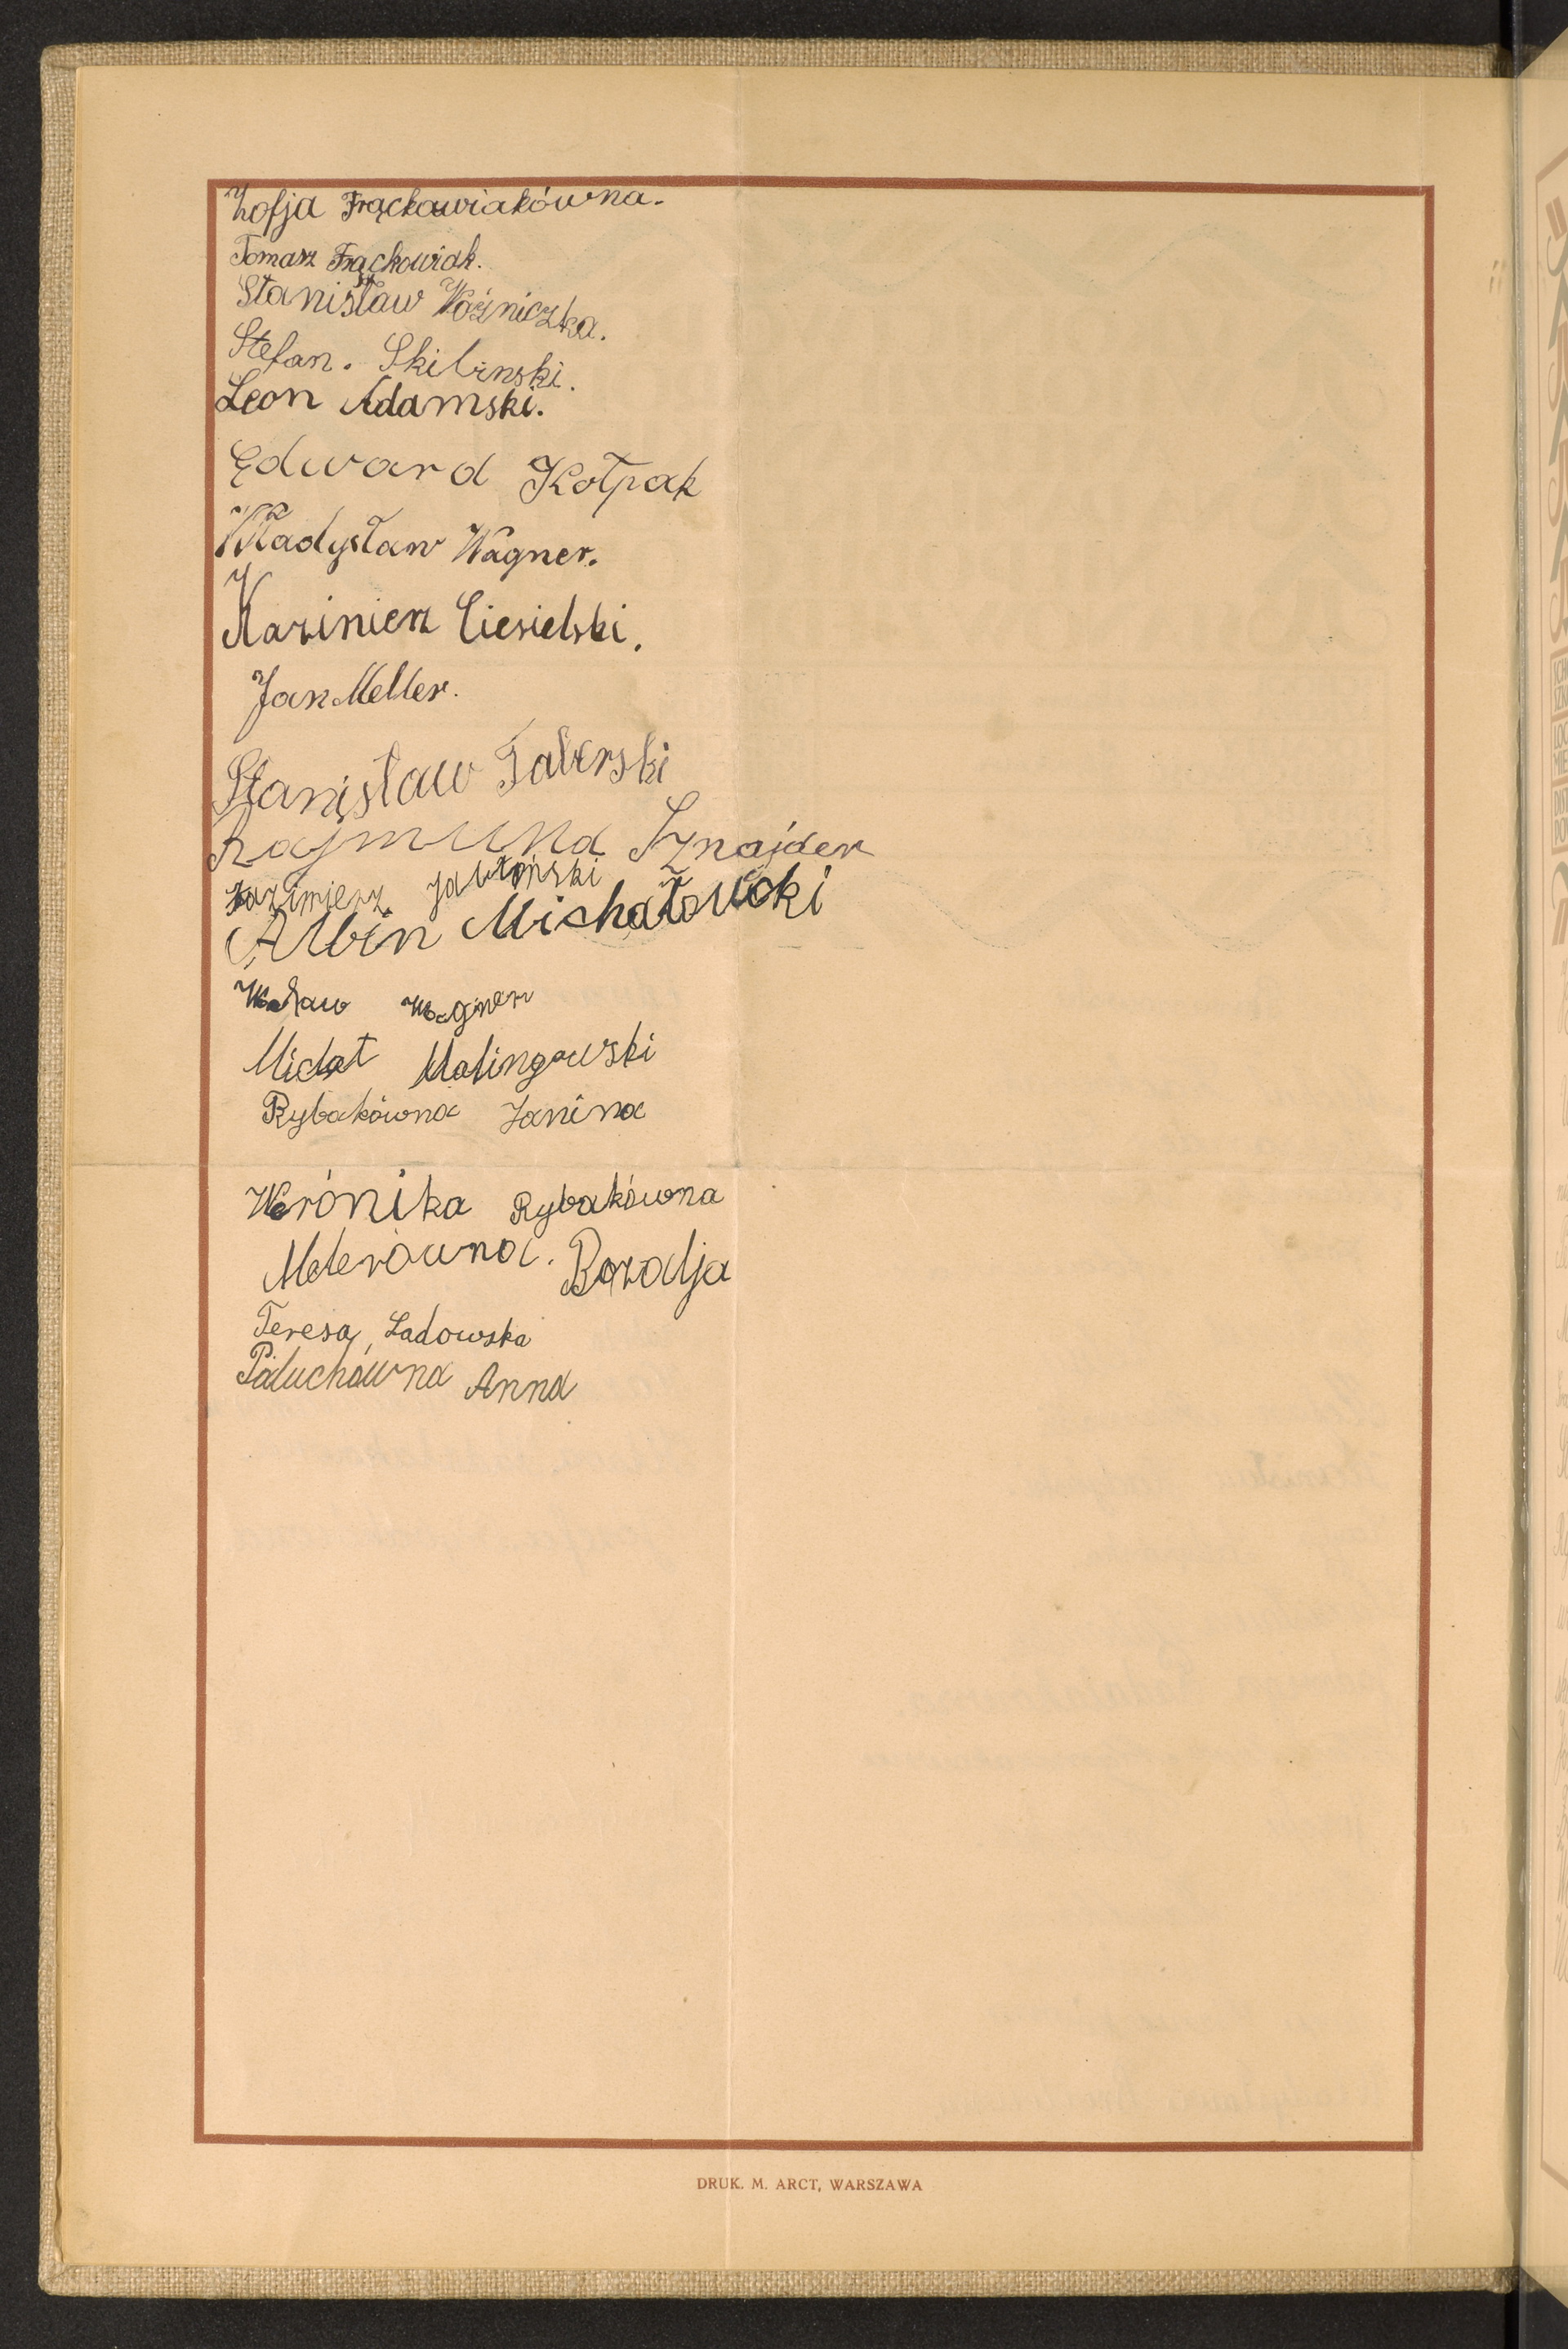 Zofja Frąckawiakówna.
Tomasz Frąckowiak.
Stanisław Woźniczka.
Stefan. Skibinski.
Leon Adamski.
Edward Kołpak
Władysław Wagner.
Kazimierz Ciesielski.
Jan Meller.
Stanisław Taberski
Rajmund Sznajder
Kazimierz Jabłoński
Albin Michałowski
Wacław Wagner
Michał Malingowski
Rybakówna Janina
Weronika Rybakówna
Melerówna.
Teresa Ladowska
Paluchówna Anna
DRUK. M. ARCT, WARSZAWA